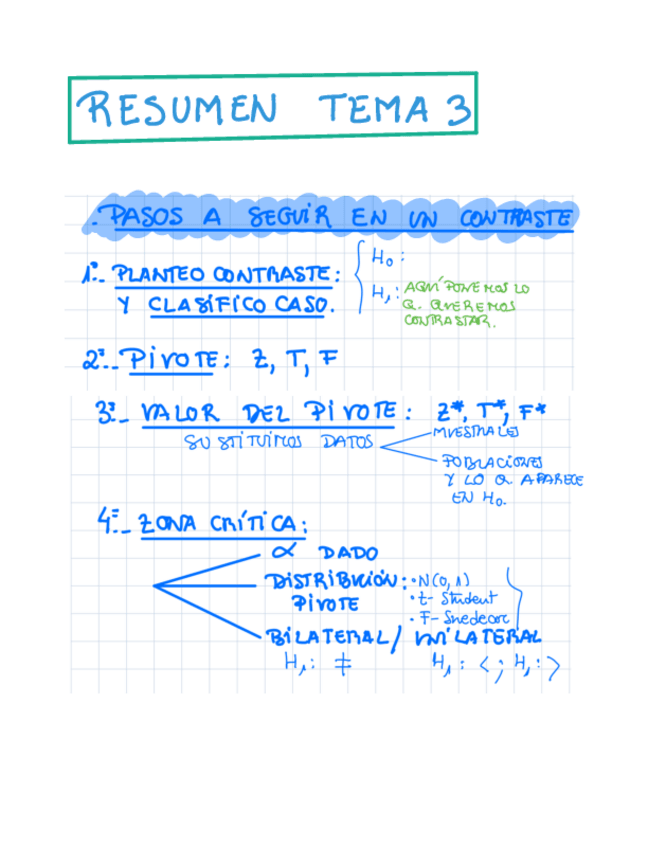 RESUMEN TEMA 3
. PASOS A SEGUIR EN UN CONTRASTE
1º.- PLANTEO CONTRASTE: H₀:
Y CLASIFICO CASO. H₁: AQUÍ PONEMOS LO
Q. QUEREMOS
CONTRASTAR.
2º.- PIVOTE: Z, T, F
3º.- VALOR DEL PIVOTE: Z*, T*, F*
SUSTITUIMOS DATOS
MUESTRALES
POBLACIONES
Y LO Q. APARECE
EN H₀.
4º.- ZONA CRÍTICA:
α DADO
DISTRIBUCIÓN: • N(0,1)
PIVOTE • t- Student
• F- Snedecor
BILATERAL / UNILATERAL
H₁: ≠ H₁: < ; H₁: >